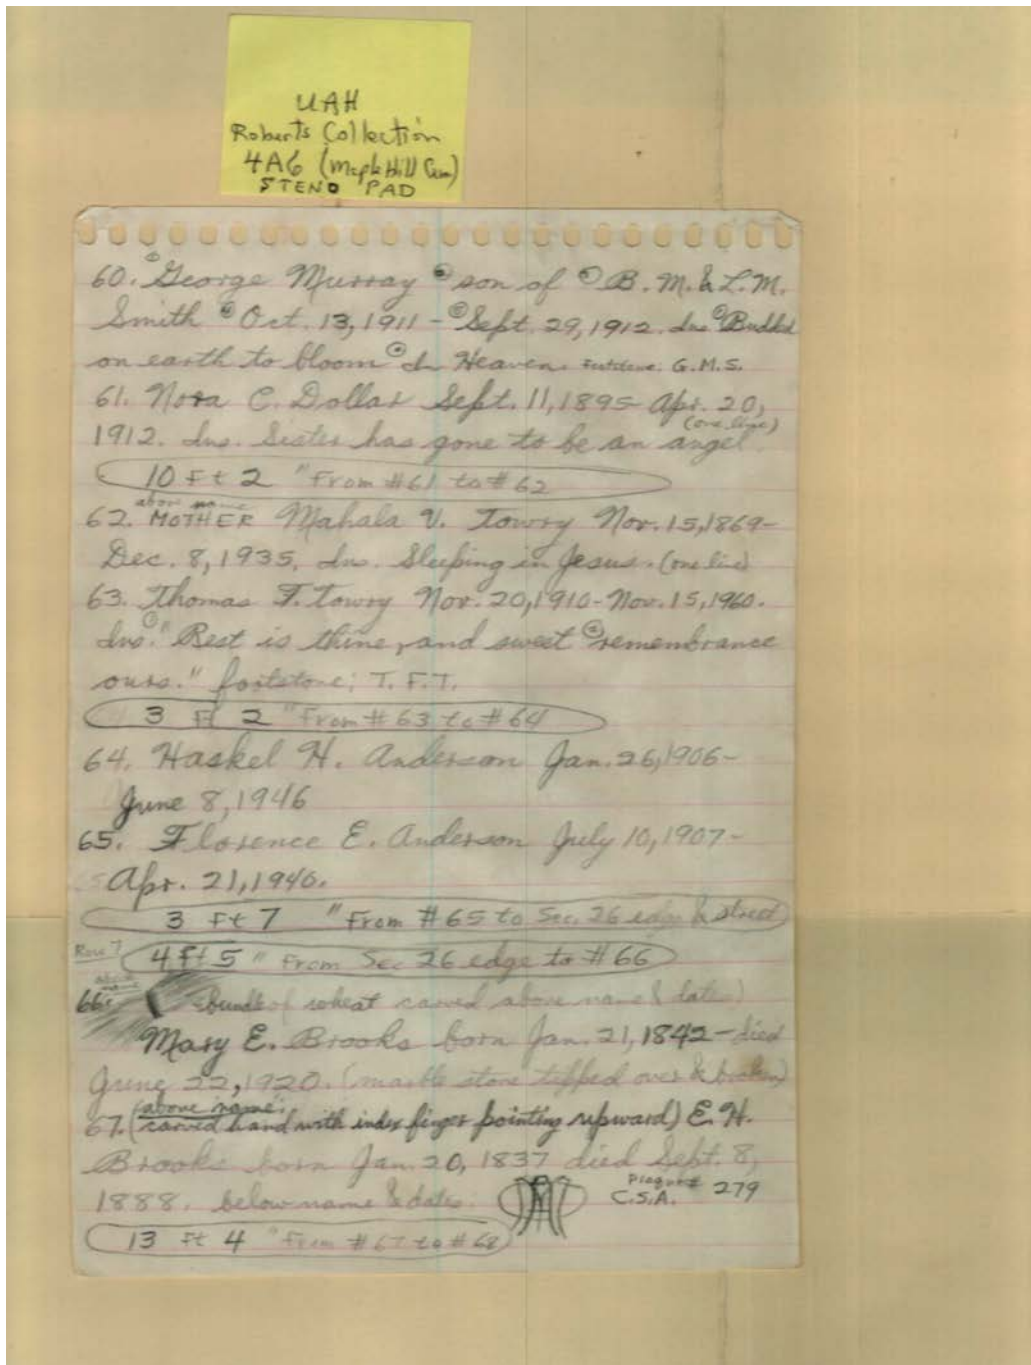 UAH
Roberts Collection
4A6 (Maple Hill Cem)
STENO PAD
60. George Murray © son of © B. M. & L. M.
Smith © Oct. 13, 1911 - © Sept. 29, 1912. Ins © Budded
on earth to bloom © In Heaven. Footstone: G.M.S.
61. Nora C. Dollar Sept. 11, 1895 - Apr. 20,
(one line)
1912. Ins. Sister has gone to be an angel.
10 Ft 2 " From #61 to #62
above name
62. MOTHER Mahala V. Towry Nov. 15, 1869 -
Dec. 8, 1935. Ins. Sleeping in Jesus. (one line)
63. Thomas F. Towry Nov. 20, 1910 - Nov. 15, 1960.
Ins. © "Rest is thine, and sweet © remembrance
ours." footstone; T. F. T.
3 Ft 2 " From #63 to #64
64. Haskel H. Anderson Jan. 26, 1906 -
June 8, 1946
65. Florence E. Anderson July 10, 1907 -
Apr. 21, 1946.
3 Ft 7 " From #65 to Sec. 26 edge & street
Row 7
4 ft 5 " From Sec 26 edge to #66
above name
66. (bundle of wheat carved above name & dates)
Mary E. Brooks born Jan. 21, 1842 - died
June 22, 1920. (marble stone tipped over & broken)
above name:
67. (carved hand with index finger pointing upward) E. H.
Brooks born Jan. 20, 1837 died Sept. 8,
1888. below name & dates:
Plaque #
C.S.A. 279
13 Ft 4 " From #67 to #68